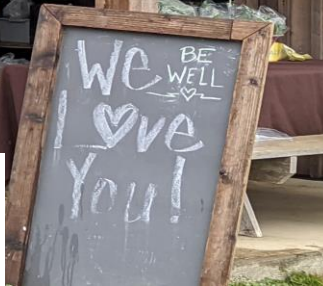 We
BE
WELL
L♡ve
You!